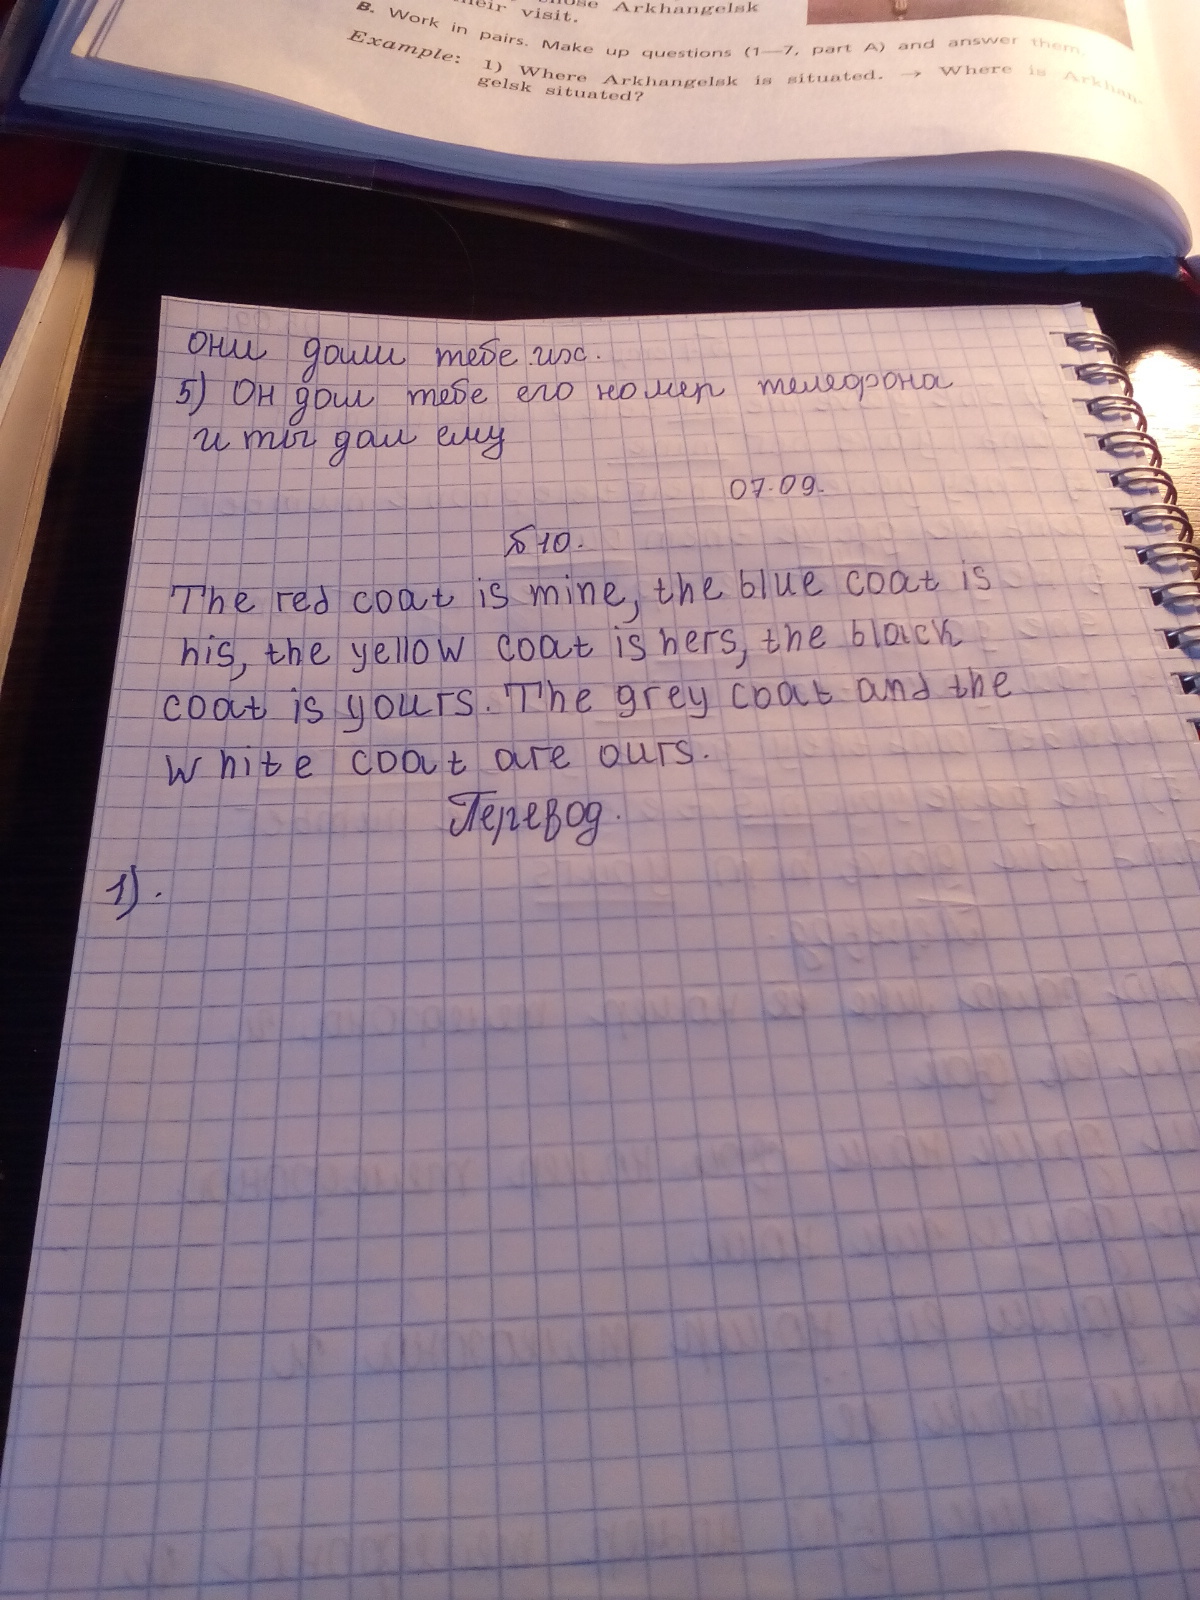 chose Arkhangelsk
their visit.
B. Work in pairs. Make up questions (1—7, part A) and answer them.
Example: 1) Where Arkhangelsk is situated. → Where is Arkhan-
gelsk situated?
они дали тебе их.
5) Он дал тебе его номер телефона
и ты дал ему
07.09.
Б 10.
The red coat is mine, the blue coat is
his, the yellow coat is hers, the black
coat is yours. The grey coat and the
white coat are ours.
Перевод.
1).